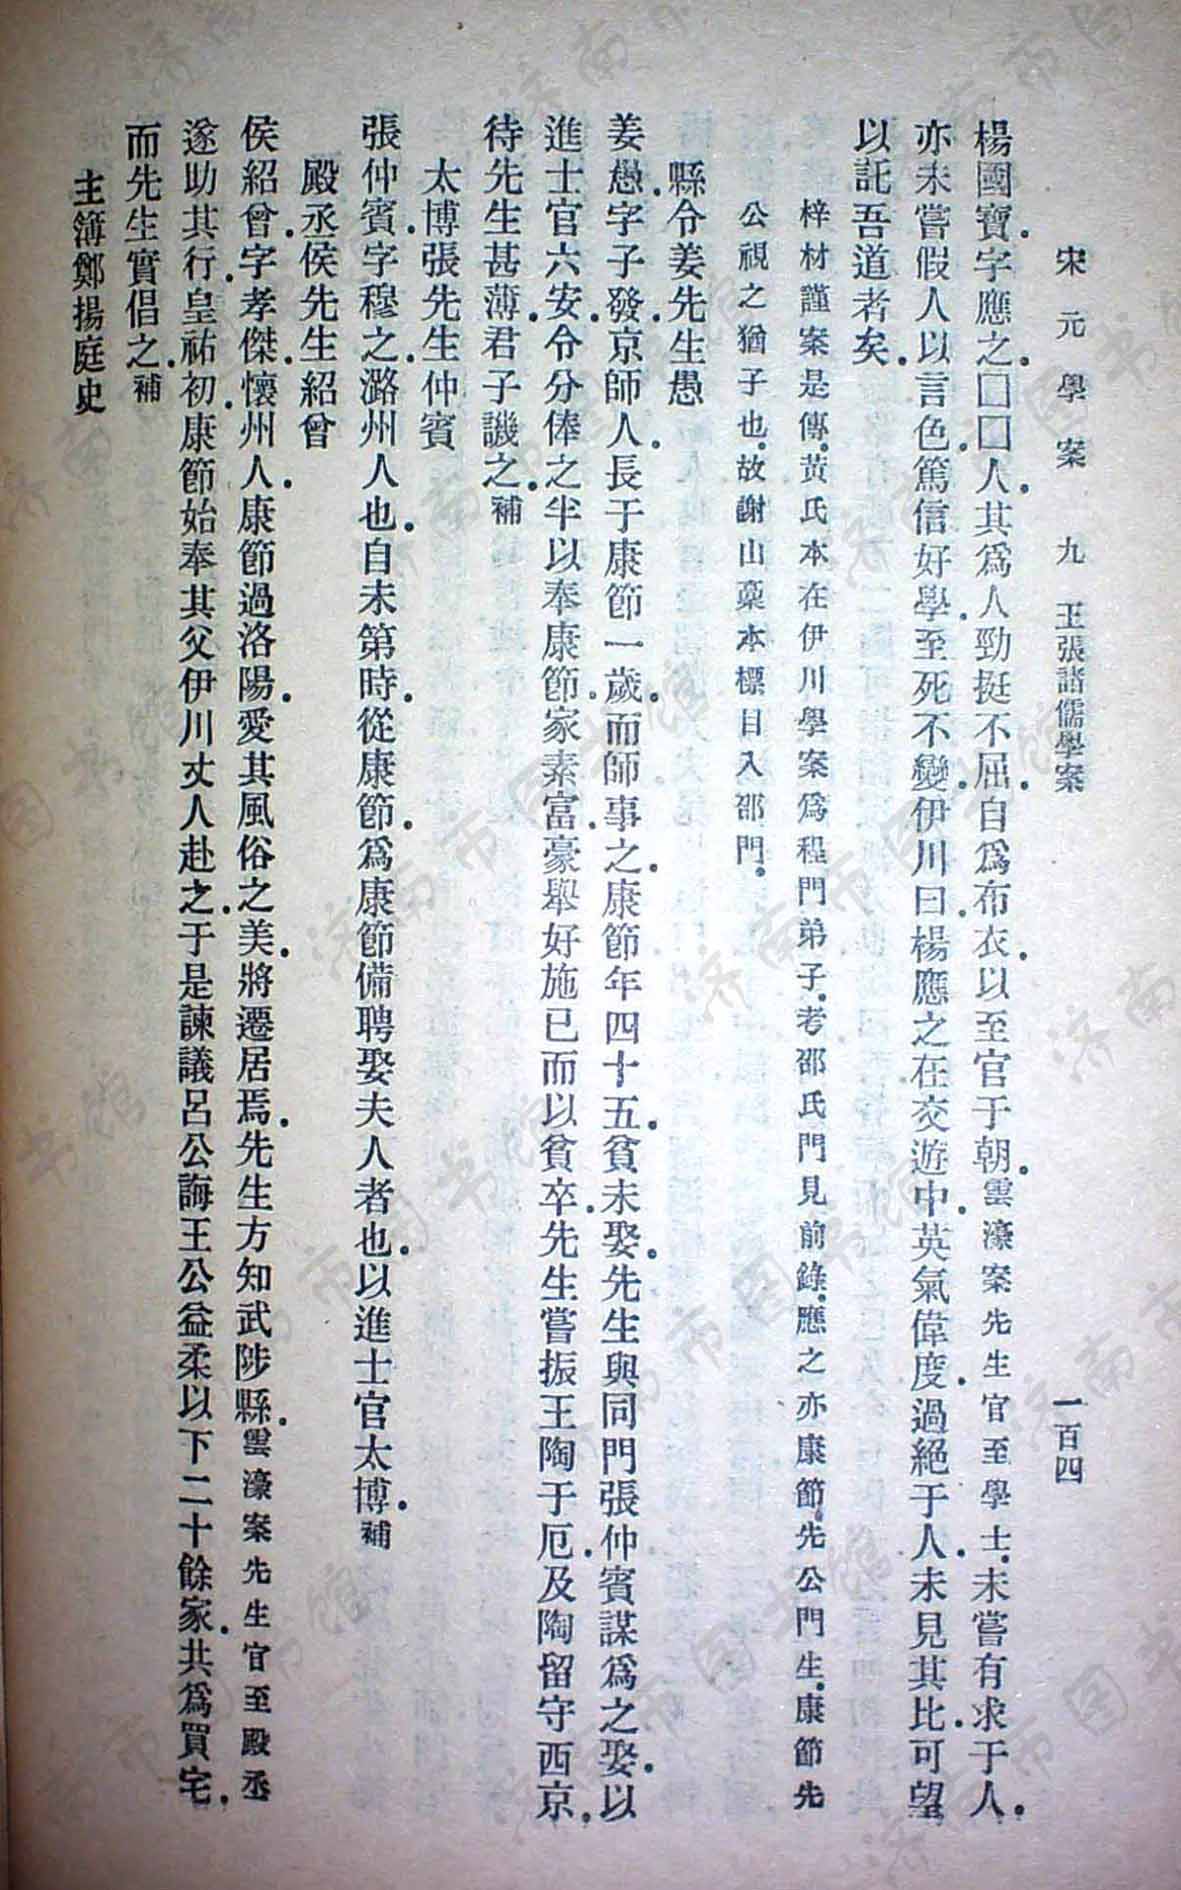 宋元學案 九 王張諸儒學案 一百四
楊國寶.字應之.□□人.其爲人勁挺不屈.自爲布衣.以至官于朝.雲濠案先生官至學士.未嘗有求于人.
亦未嘗假人以言色.篤信好學.至死不變.伊川曰.楊應之在交遊中.英氣偉度.過絕于人.未見其比.可望
以託吾道者矣.
梓材謹案是傳.黃氏本在伊川學案爲程門弟子.考邵氏門見前錄.應之亦康節先公門生.康節先
公視之猶子也.故謝山稾本標目入邵門.
縣令姜先生愚
姜愚.字子發.京師人.長于康節一歲.而師事之.康節年四十五.貧未娶.先生與同門張仲賓謀爲之娶.以
進士官六安令.分俸之半以奉康節.家素富.豪舉好施.已而以貧卒.先生嘗振王陶于厄.及陶留守西京.
待先生甚薄.君子譏之.補
太博張先生仲賓
張仲賓.字穆之.潞州人也.自未第時.從康節.爲康節備聘娶夫人者也.以進士官太博.補
殿丞侯先生紹曾
侯紹曾.字孝傑.懷州人.康節過洛陽.愛其風俗之美.將遷居焉.先生方知武陟縣.雲濠案先生官至殿丞
遂助其行.皇祐初.康節始奉其父伊川丈人赴之.于是諫議呂公誨王公益柔以下二十餘家.共爲買宅.
而先生實倡之.補
主簿鄭揚庭史